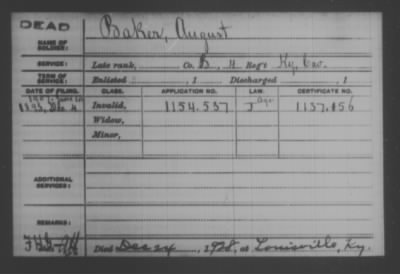 DEAD
NAME OF SOLDIER: Baker, August
SERVICE: Late rank, Co. B, 4 Reg't Ky. Cav.
TERM OF SERVICE: Enlisted , 1 Discharged , 1
DATE OF FILING. CLASS. APPLICATION NO. LAW. CERTIFICATE NO.
Age
1893, Dec. 4 Invalid, 1154.537 J 1137.856
Widow,
Minor,
ADDITIONAL SERVICES:
REMARKS:
Died Dec 24, 1928, at Louisville, Ky.